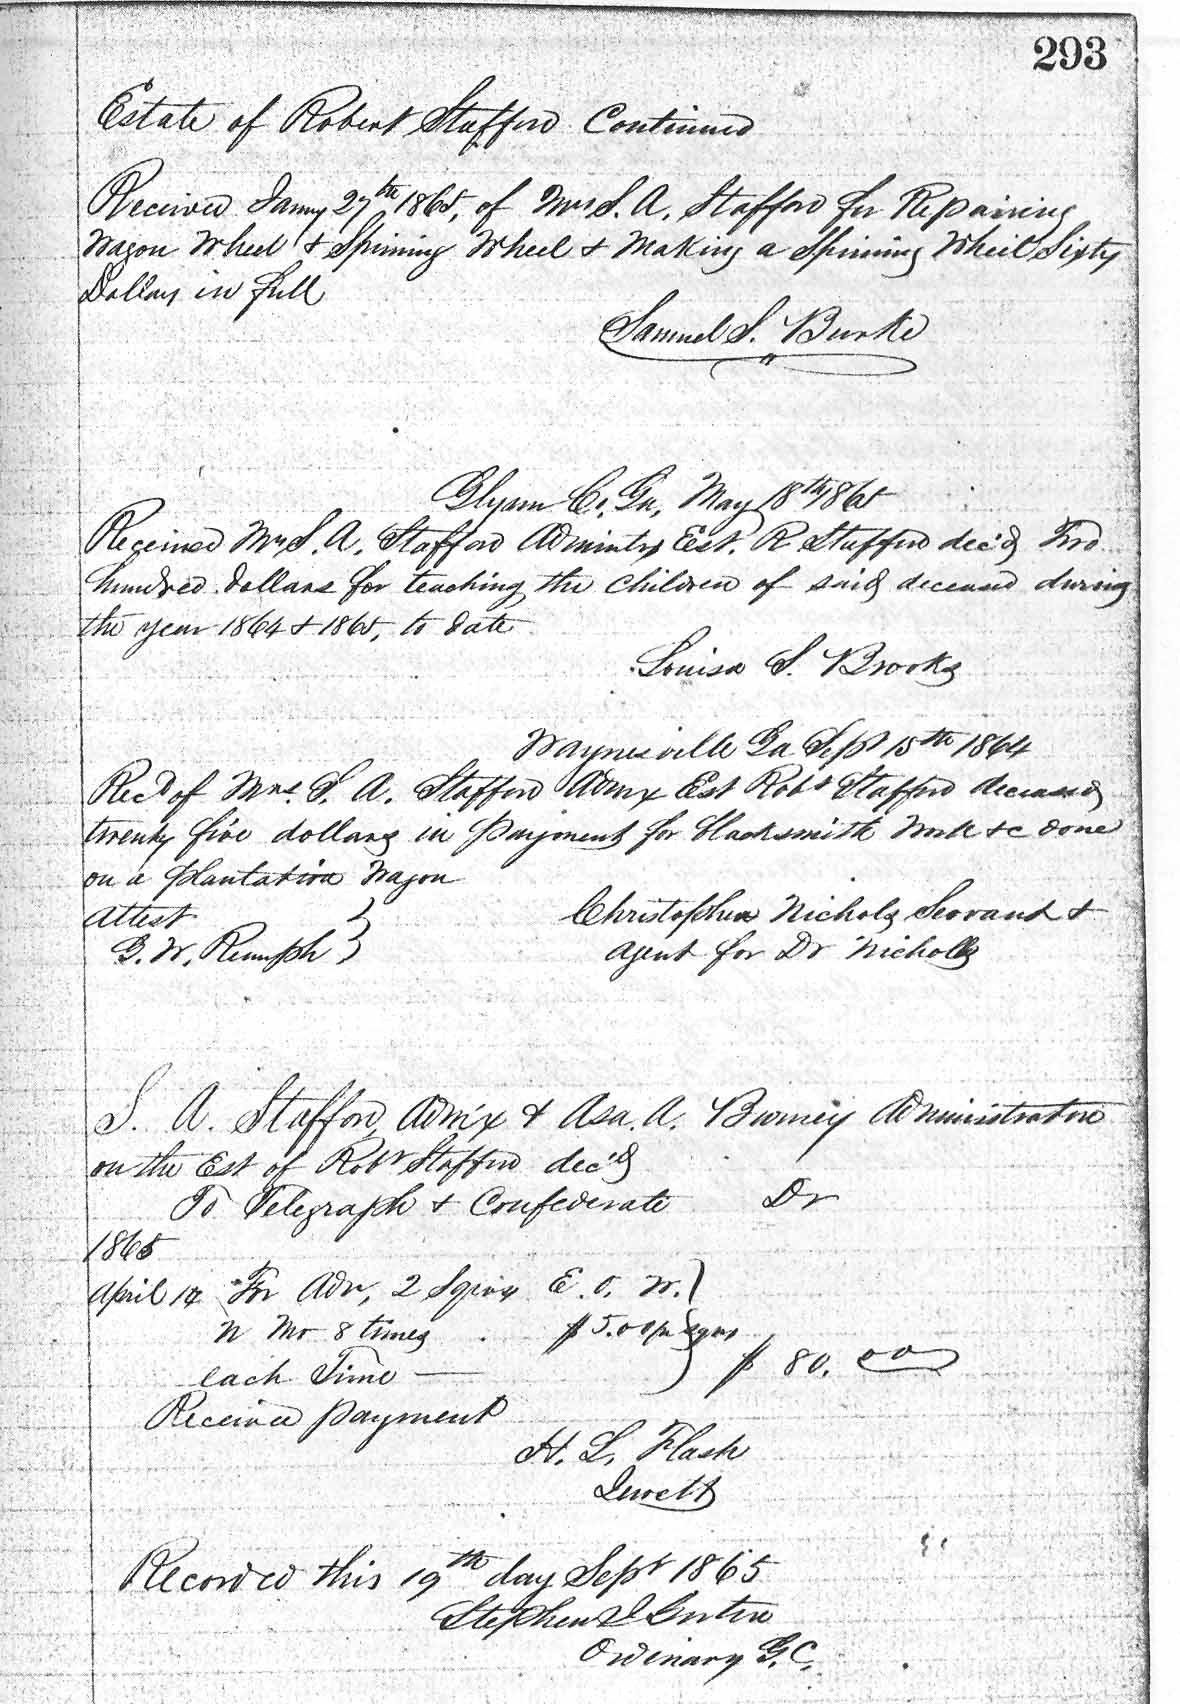 293
Estate of Robert Stafford Continued
Received Jany 27th 1865, of Mrs S. A. Stafford for Repairing
Wagon Wheel & Spinning Wheel & Making a Spinning Wheel Sixty
Dollars in full
Samuel S. Burke
Glynn Co, Ga, May 18th 1865
Received Mrs S. A. Stafford Admintrx Est. R Stafford dec'd Two
hundred dollars for teaching the children of said deceased during
the year 1864 & 1865, to date
Louisa S. Brooks
Waynesville Ga Sept 15th 1864
Recd of Mrs. S. A. Stafford Admx Est Robt Stafford deceased
twenty five dollars in payment for blacksmith work &c done
on a plantation Wagon
Attest
Christopher Nichols Servant &
G. W. Rumph }
agent for Dr Nicholls
S. A. Stafford, Adm'x & Asa. A. Burney Administrators
on the Est of Robt Stafford dec'd
To Telegraph & Confederate Dr
1865
April 14 For Adv, 2 Sqrs E. O. W. }
Mo 8 times $5.00 pr sqr
each Time — $ 80.00
Received payment
H. L. Flash
Jewett
Recorded this 19th day Sept 1865
Stephen J Gorton
Ordinary G. C.